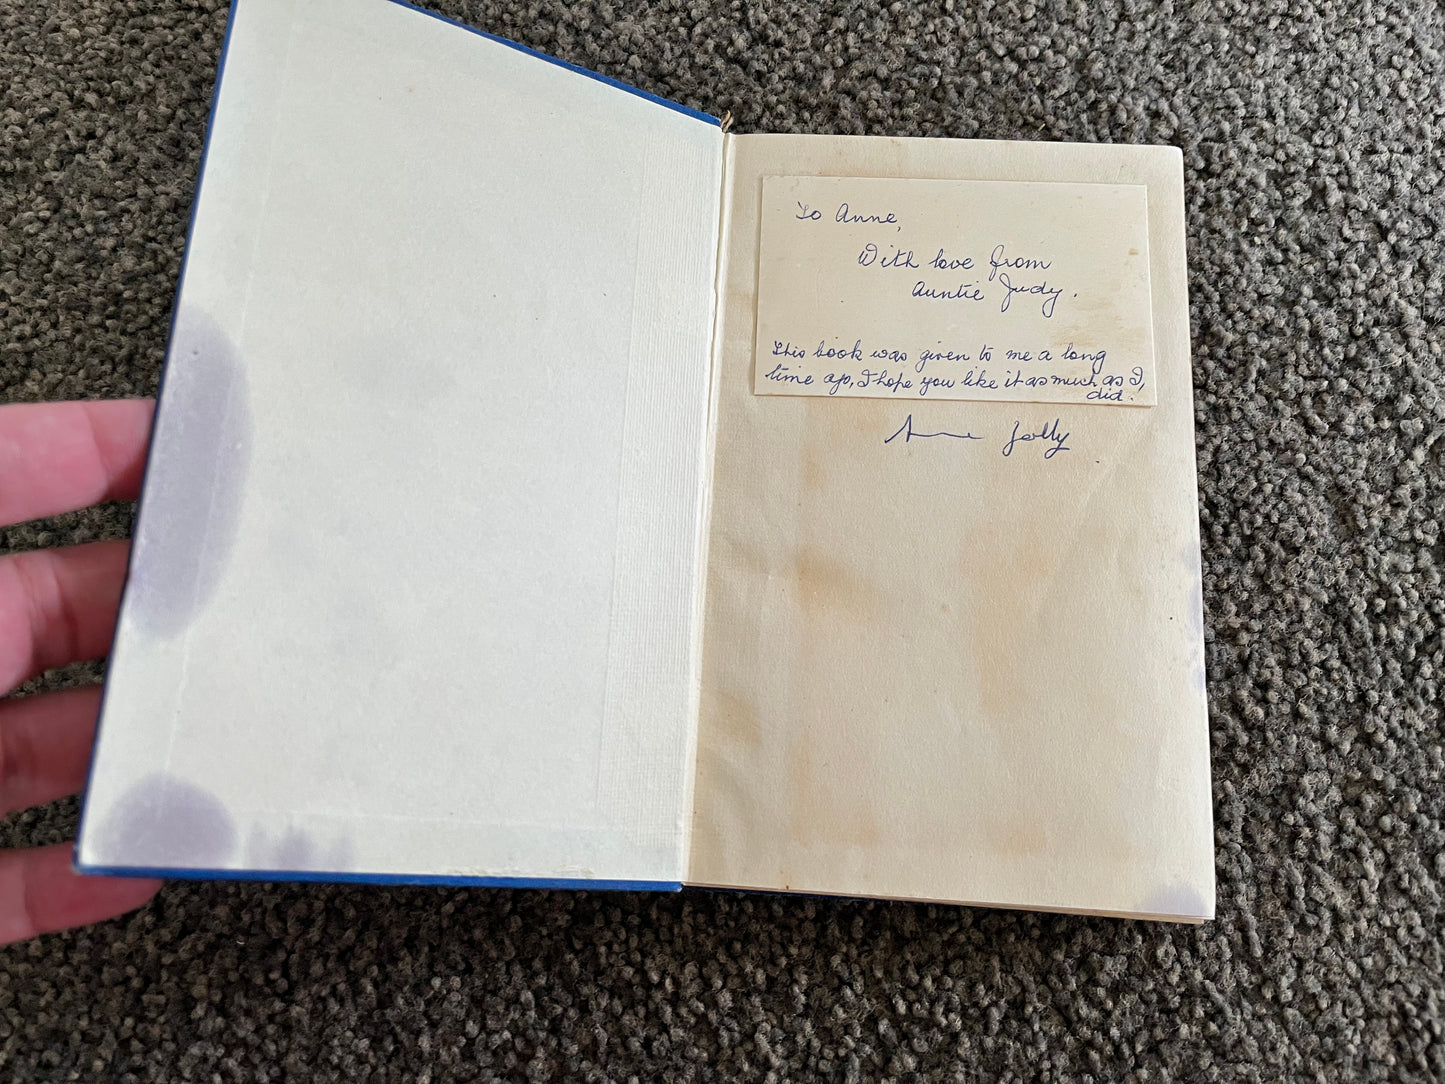 To Anne,
With love from
Auntie Judy.
This book was given to me a long
time ago, I hope you like it as much as I,
did.
Anne Jolly